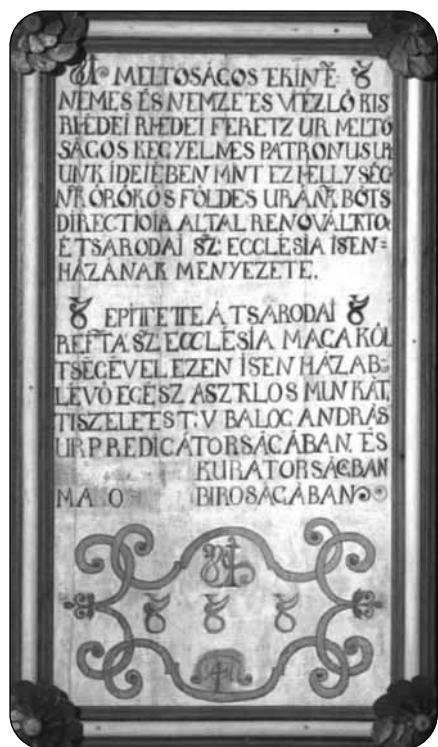 MELTOSÁGOS TEKINTE:
NEMES ÉS NEMZETES VITÉZLŐ KIS
RHÉDEI RHEDEI FERETZ UR MELTO
SÁGOS KEGYELMES PATRONUS UR
UNK IDEIÉBEN MINT EZ HELLYSÉG
NK ÖRÖKÖS FÖLDES URÁNK BÖTS
DIRECTIOIA ALTAL RENOVÁLTTO
É TSARODAI SZ: ECCLESIA ISEN=
HÁZÁNAK MENYEZETE.
EPITTETTE A TSARODAI
REFTA SZ ECCLESIA MAGA KÖL
TSÉGÉVEL EZEN ISEN HÁZAB:
LÉVŐ EGÉSZ ASZTLOS MUNKÁT
TISZELETES T: V BALOG ANDRÁS
UR PREDICÁTORSÁGÁBAN. ÉS
KURATORSÁGBAN
MA O BIROSÁGÁBAN